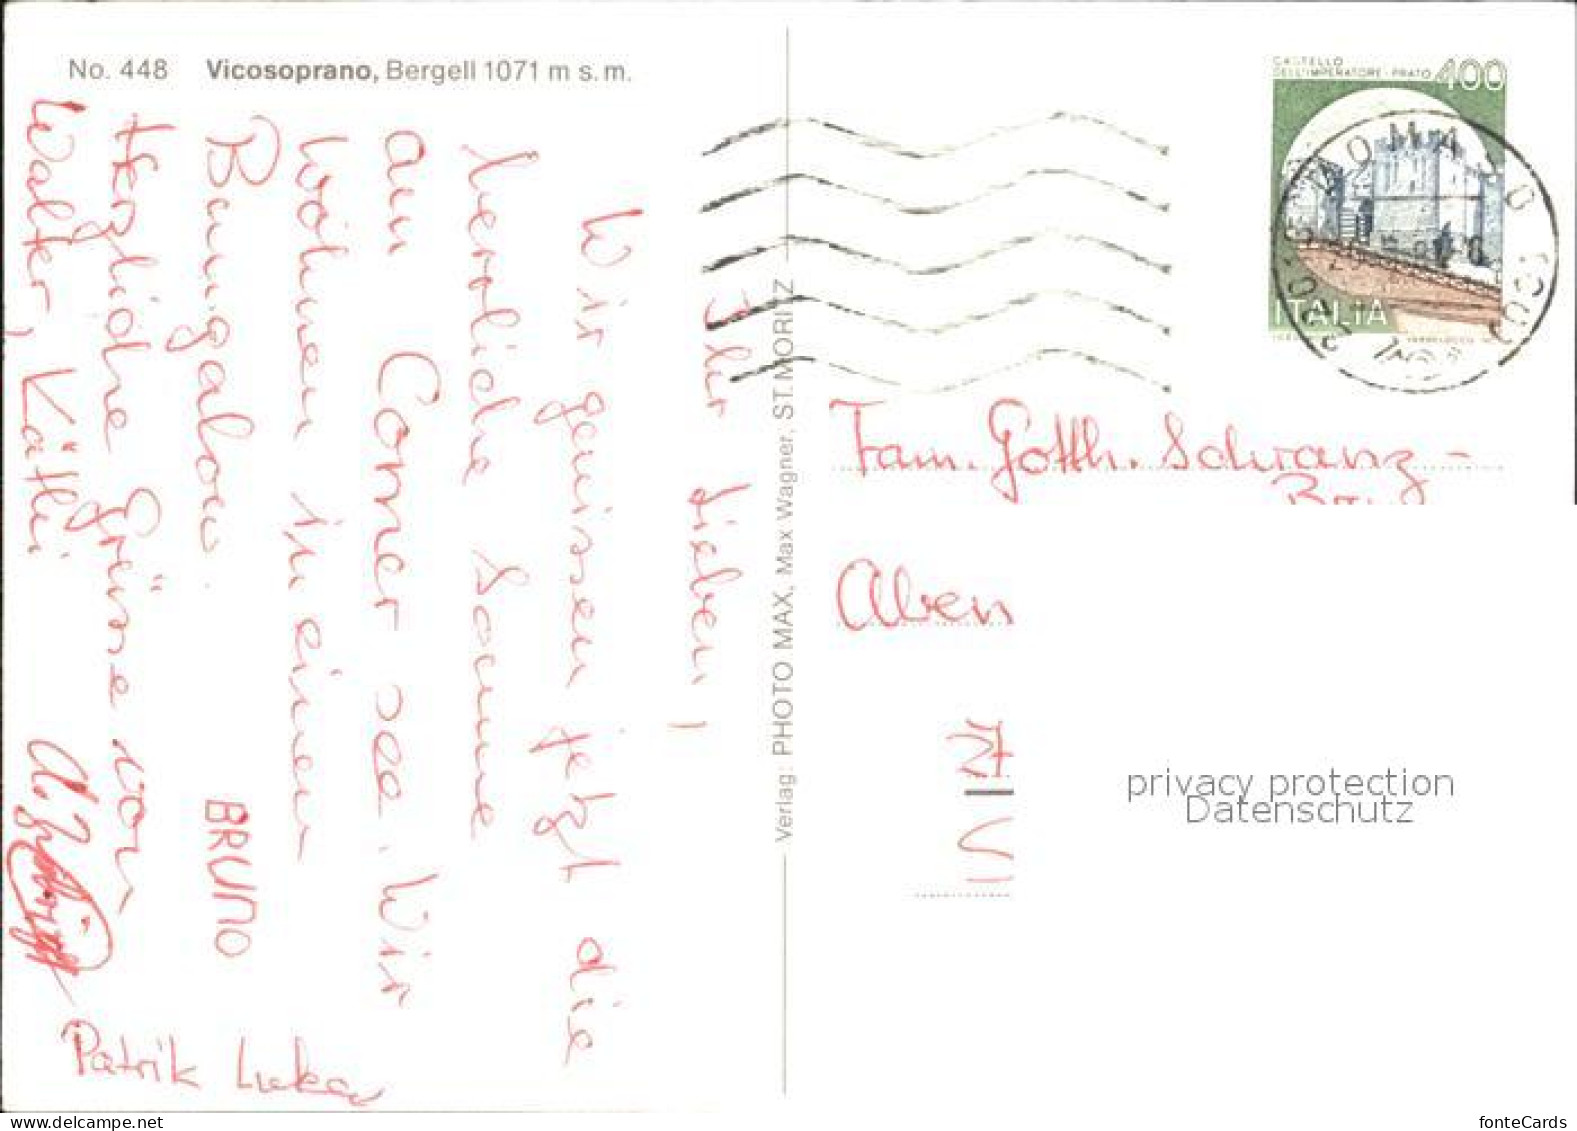 No. 448 Vicosoprano, Bergell 1071 m s.m.
Ihr Lieben!
Wir geniessen jetzt die
herrliche Sonne
am Comer see. Wir
wohnen in einem
Bungalow.
Herzliche Grüsse von
Walter, Käthi
BRUNO
Patrik Lukas
Verlag: PHOTO MAX, Max Wagner, ST. MORITZ
CASTELLO
DELL'IMPERATORE - PRATO 400
ITALIA
Fam. Gotth. Schranz-
Aben
privacy protection
Datenschutz
www.delcampe.net
fonteCards